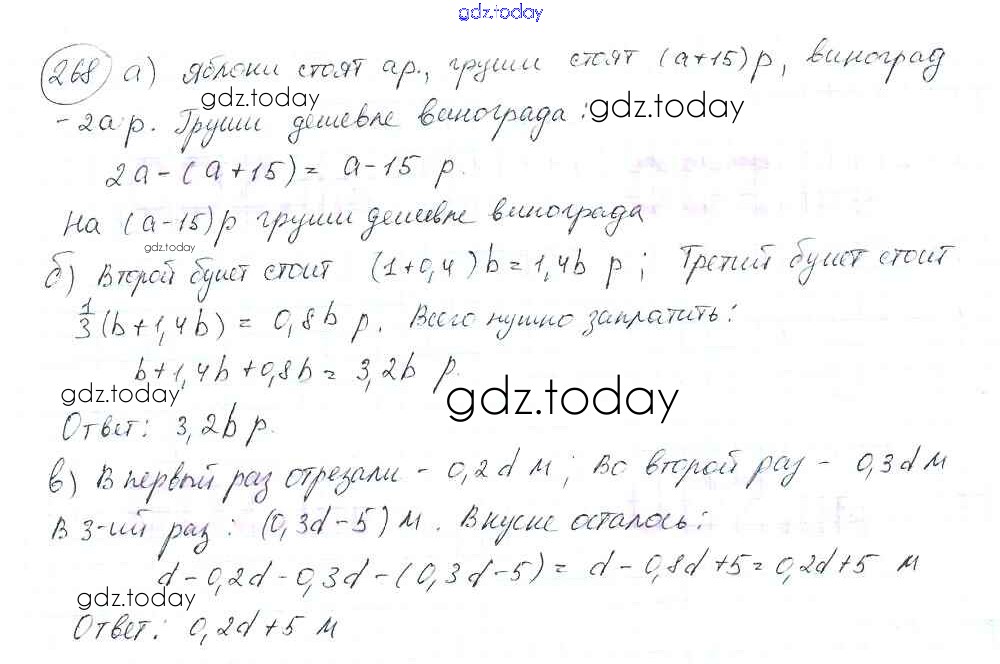 gdz.today
268 а) Яблоки стоят а р., груши стоят (а+15) р, виноград
gdz.today gdz.today
- 2а р. Груши дешевле винограда:
2а-(а+15)= а-15 р.
На (а-15)р груши дешевле винограда
gdz.today
б) Второй букет стоит (1+0,4)b=1,4b р; Третий букет стоит
1/3(b+1,4b) = 0,8b р. Всего нужно заплатить:
b+1,4b+0,8b= 3,2b р.
gdz.today gdz.today
Ответ: 3,2b р.
в) В первый раз отрезали - 0,2d м; Во второй раз - 0,3d м
В 3-ий раз: (0,3d-5) м. В куске осталось:
d-0,2d-0,3d-(0,3d-5)= d-0,8d+5=0,2d+5 м
gdz.today
Ответ: 0,2d+5 м